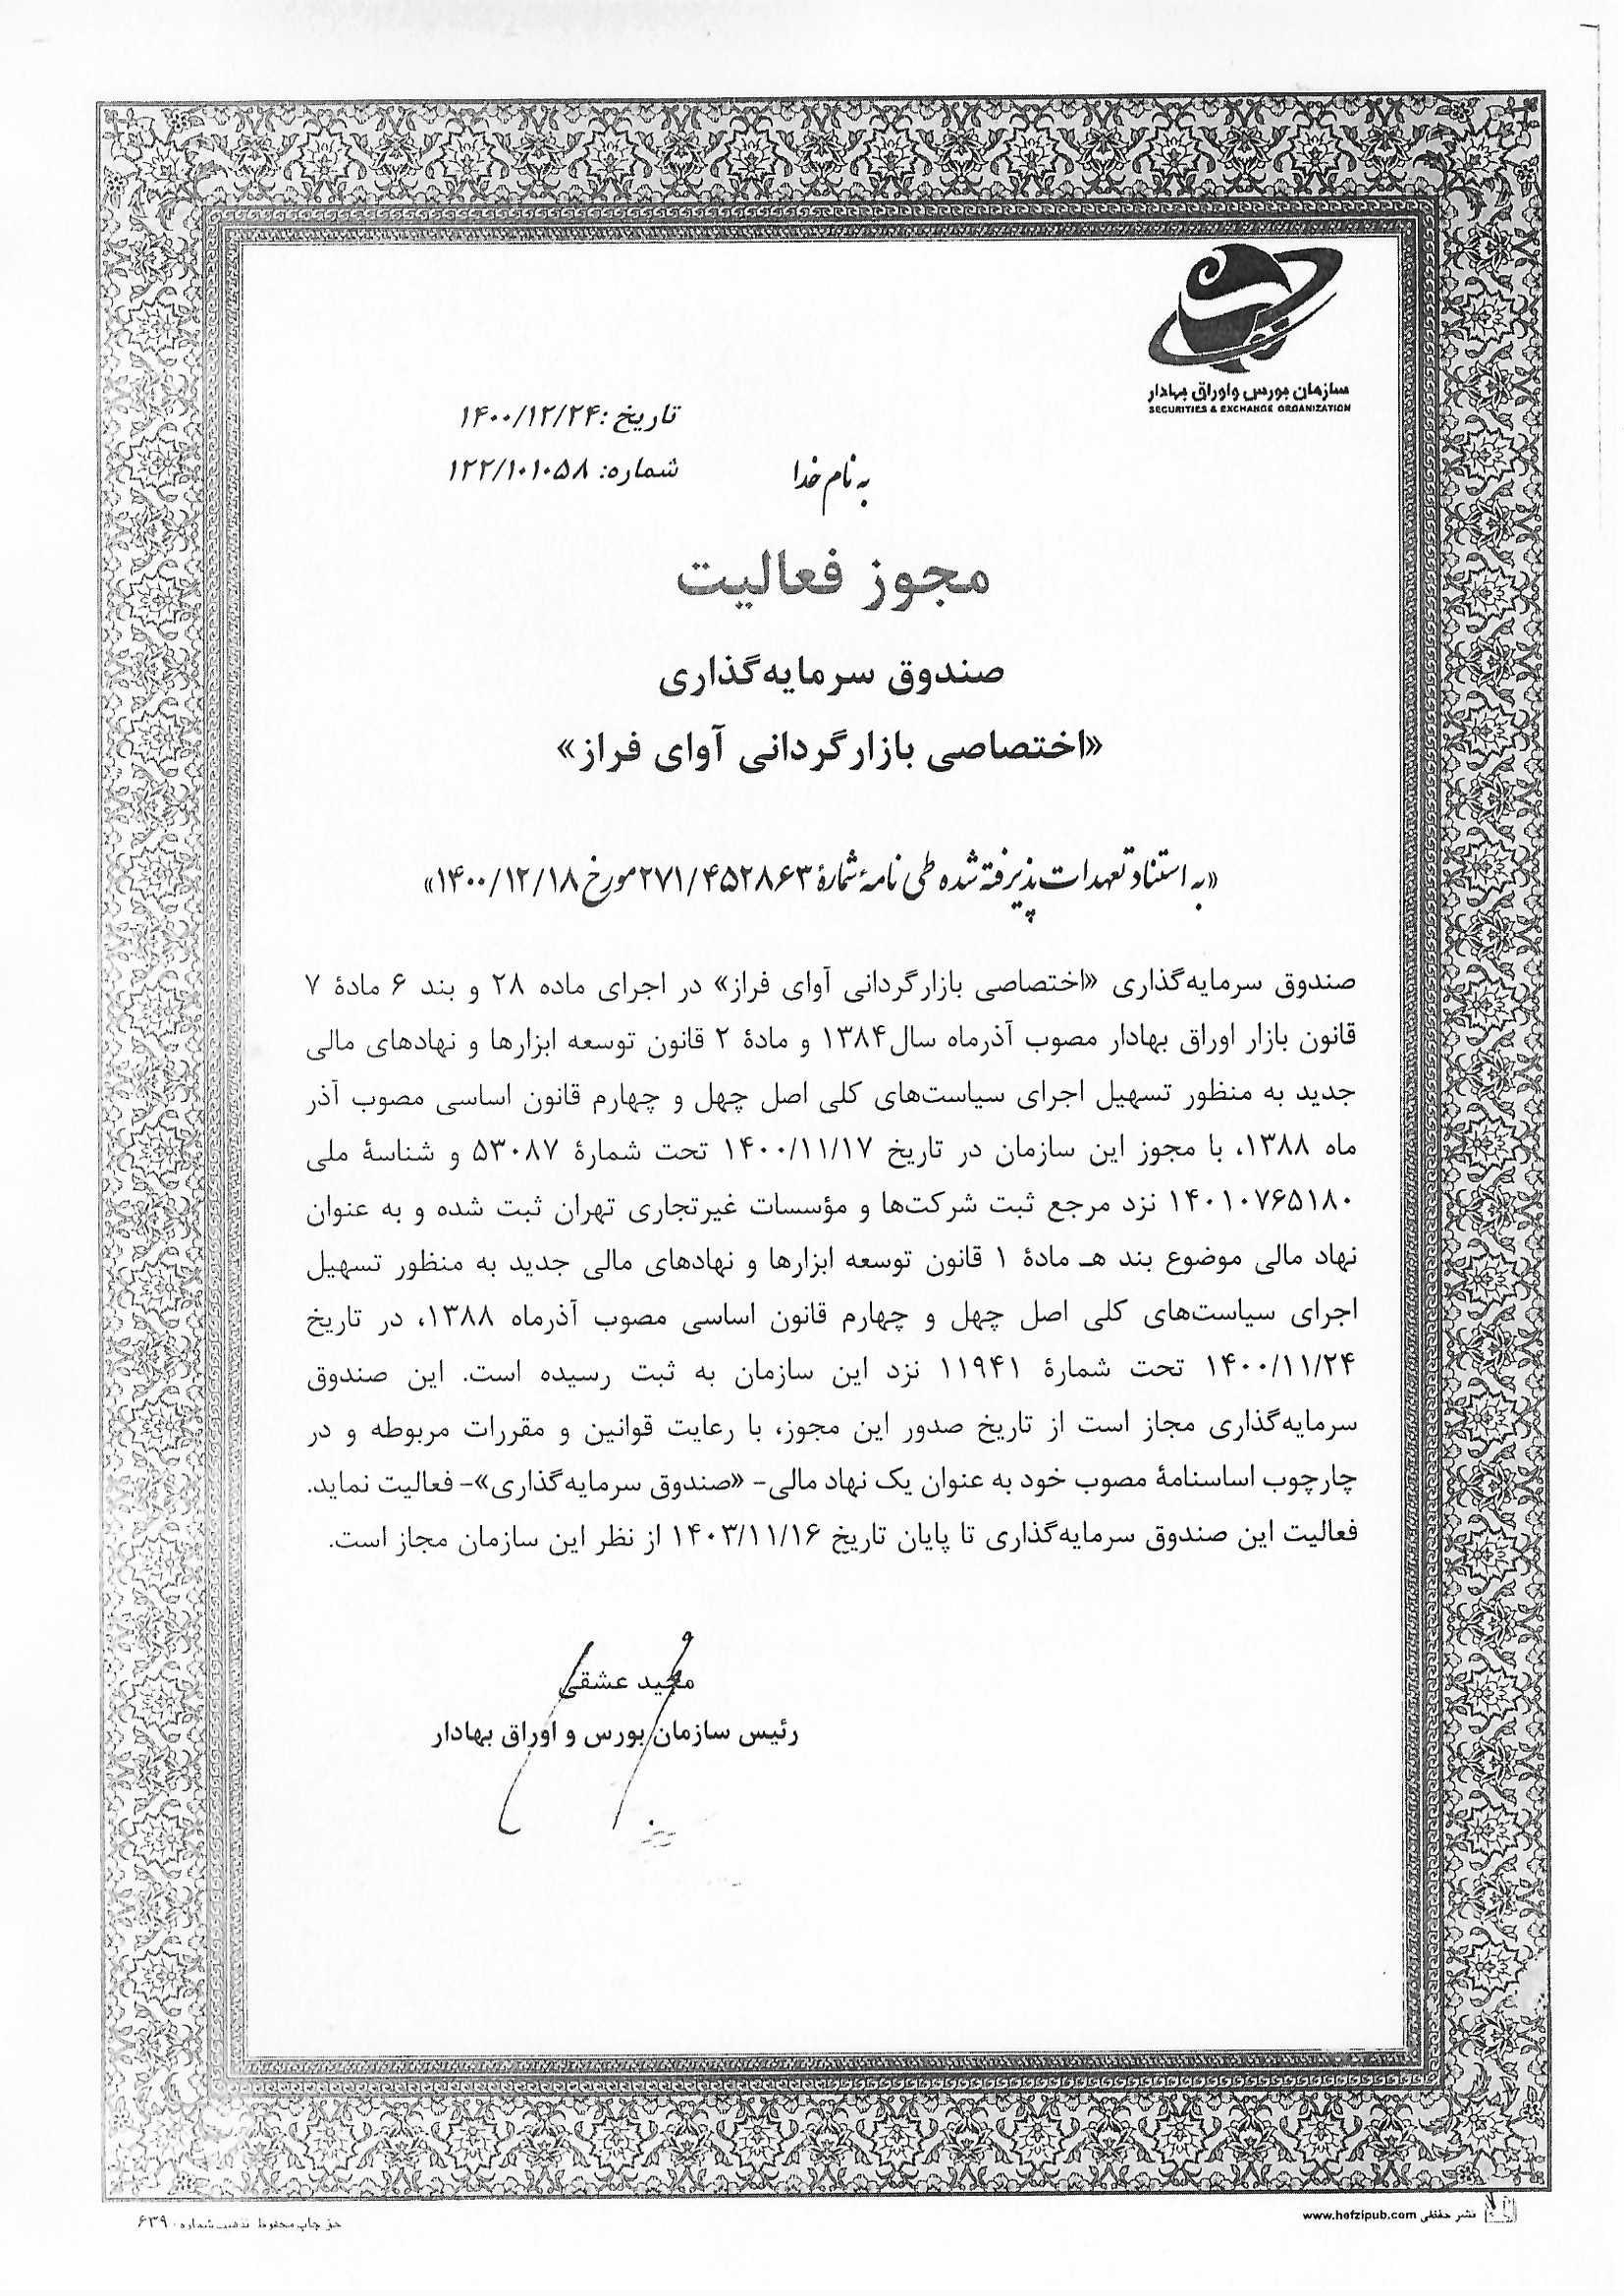 سازمان بورس و اوراق بهادار
SECURITIES & EXCHANGE ORGANIZATION
تاریخ: ۱۴۰۰/۱۲/۲۴
شماره: ۱۲۲/۱۰۱۰۵۸
به نام خدا
مجوز فعالیت
صندوق سرمایه‌گذاری
«اختصاصی بازارگردانی آوای فراز»
«به استناد تعهدات پذیرفته شده طی نامهٔ شمارهٔ ۲۷۱/۴۵۲۸۶۳ مورخ ۱۴۰۰/۱۲/۱۸»
صندوق سرمایه‌گذاری «اختصاصی بازارگردانی آوای فراز» در اجرای ماده ۲۸ و بند ۶ مادهٔ ۷
قانون بازار اوراق بهادار مصوب آذرماه سال ۱۳۸۴ و مادهٔ ۲ قانون توسعه ابزارها و نهادهای مالی
جدید به منظور تسهیل اجرای سیاست‌های کلی اصل چهل و چهارم قانون اساسی مصوب آذر
ماه ۱۳۸۸، با مجوز این سازمان در تاریخ ۱۴۰۰/۱۱/۱۷ تحت شمارهٔ ۵۳۰۸۷ و شناسهٔ ملی
۱۴۰۱۰۷۶۵۱۸۰ نزد مرجع ثبت شرکت‌ها و مؤسسات غیرتجاری تهران ثبت شده و به عنوان
نهاد مالی موضوع بند هـ مادهٔ ۱ قانون توسعه ابزارها و نهادهای مالی جدید به منظور تسهیل
اجرای سیاست‌های کلی اصل چهل و چهارم قانون اساسی مصوب آذرماه ۱۳۸۸، در تاریخ
۱۴۰۰/۱۱/۲۴ تحت شمارهٔ ۱۱۹۴۱ نزد این سازمان به ثبت رسیده است. این صندوق
سرمایه‌گذاری مجاز است از تاریخ صدور این مجوز، با رعایت قوانین و مقررات مربوطه و در
چارچوب اساسنامهٔ مصوب خود به عنوان یک نهاد مالی- «صندوق سرمایه‌گذاری»- فعالیت نماید.
فعالیت این صندوق سرمایه‌گذاری تا پایان تاریخ ۱۴۰۳/۱۱/۱۶ از نظر این سازمان مجاز است.
مجید عشقی
رئیس سازمان بورس و اوراق بهادار
نشر حفظی www.hefzipub.com
حق چاپ محفوظ تذهیب شماره: ۶۳۹